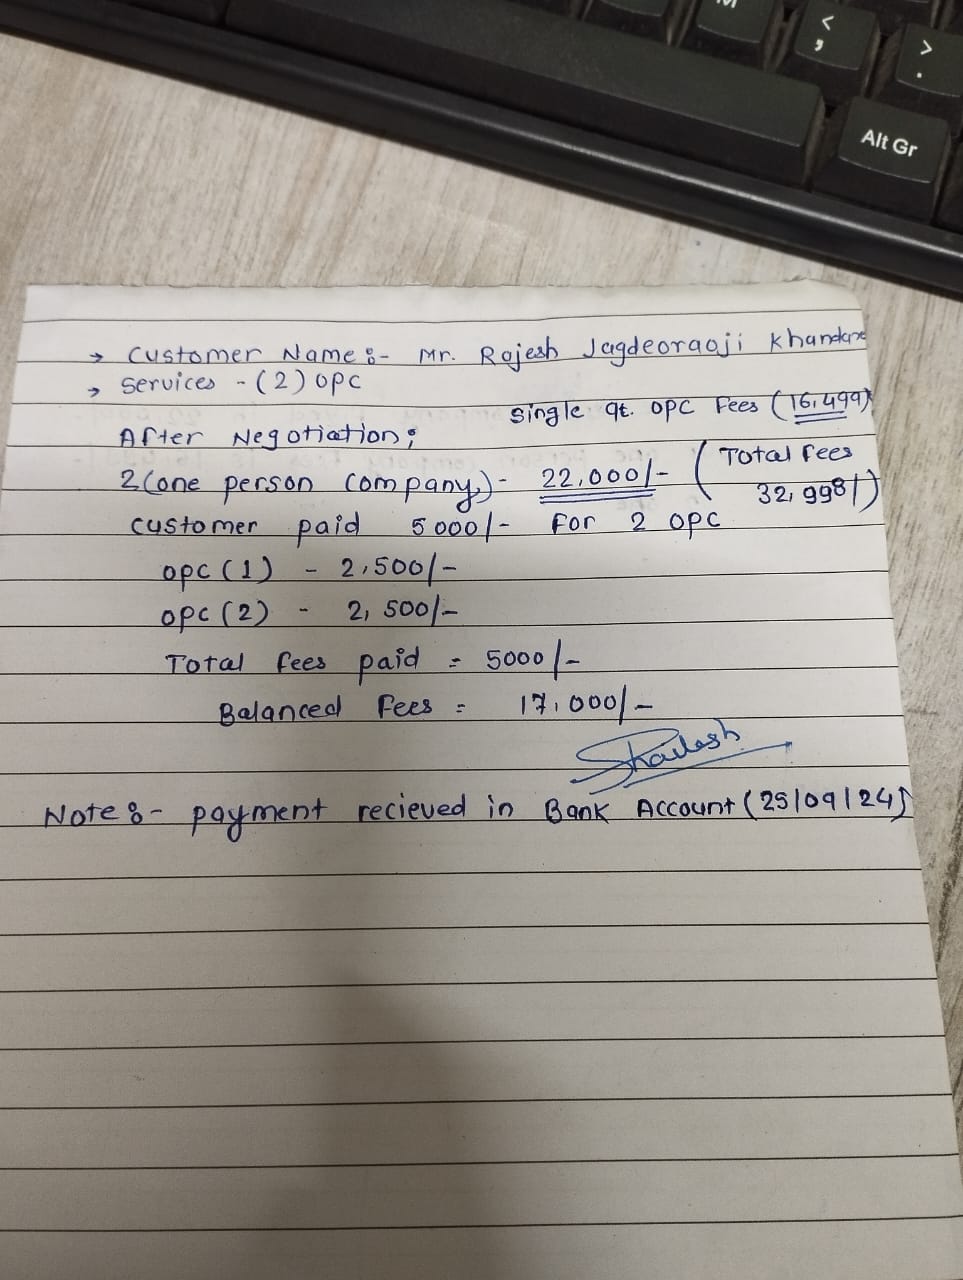 M
<
,
>
.
Alt Gr
→ Customer Name :- Mr. Rajesh Jagdeoraoji Khandare
→ Services - (2) OPC
Single qt. OPC Fees (16,499)
After Negotiation;
2 (one person company) - 22,000/- (Total fees
32,998/)
customer paid 5000/- For 2 OPC
OPC (1) - 2,500/-
OPC (2) - 2,500/-
Total fees paid = 5000/-
Balanced Fees = 17,000/-
Shailesh
Note :- payment recieved in Bank Account (25/09/24)